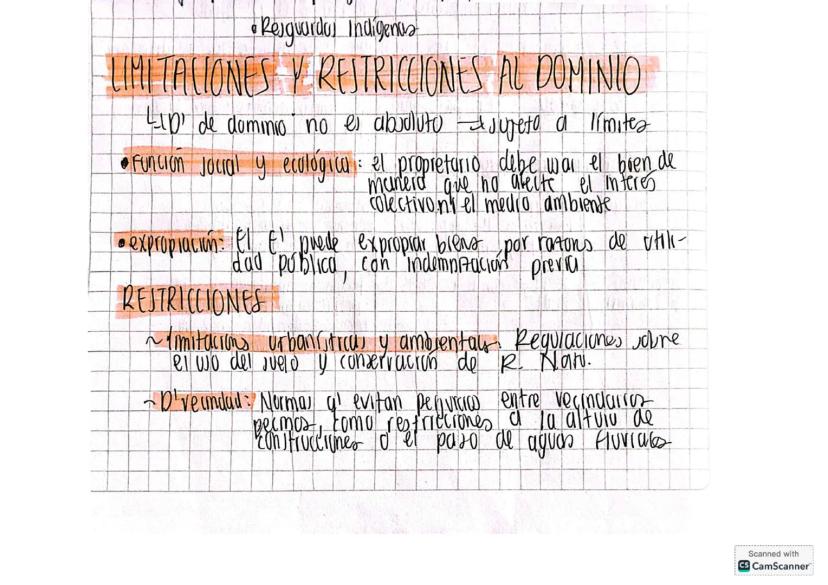 • Resguardos Indígenas
LIMITACIONES Y RESTRICCIONES AL DOMINIO
↳ D' de dominio no es absoluto → sujeto a límites
• Función social y ecológica: el propietario debe usar el bien de
manera que no afecte el interés
colectivo ni el medio ambiente
• expropiación: El E' puede expropiar bienes por razones de utili-
dad pública, con indemnización previa
RESTRICCIONES
~ limitaciones urbanísticas y ambientales. Regulaciones sobre
el uso del suelo y conservación de R. Natu.
~ D' vecindad: Normas q' evitan perjuicios entre
como restricciones a la altura de
construcciones o el paso de aguas fluviales
Scanned with
CS CamScanner